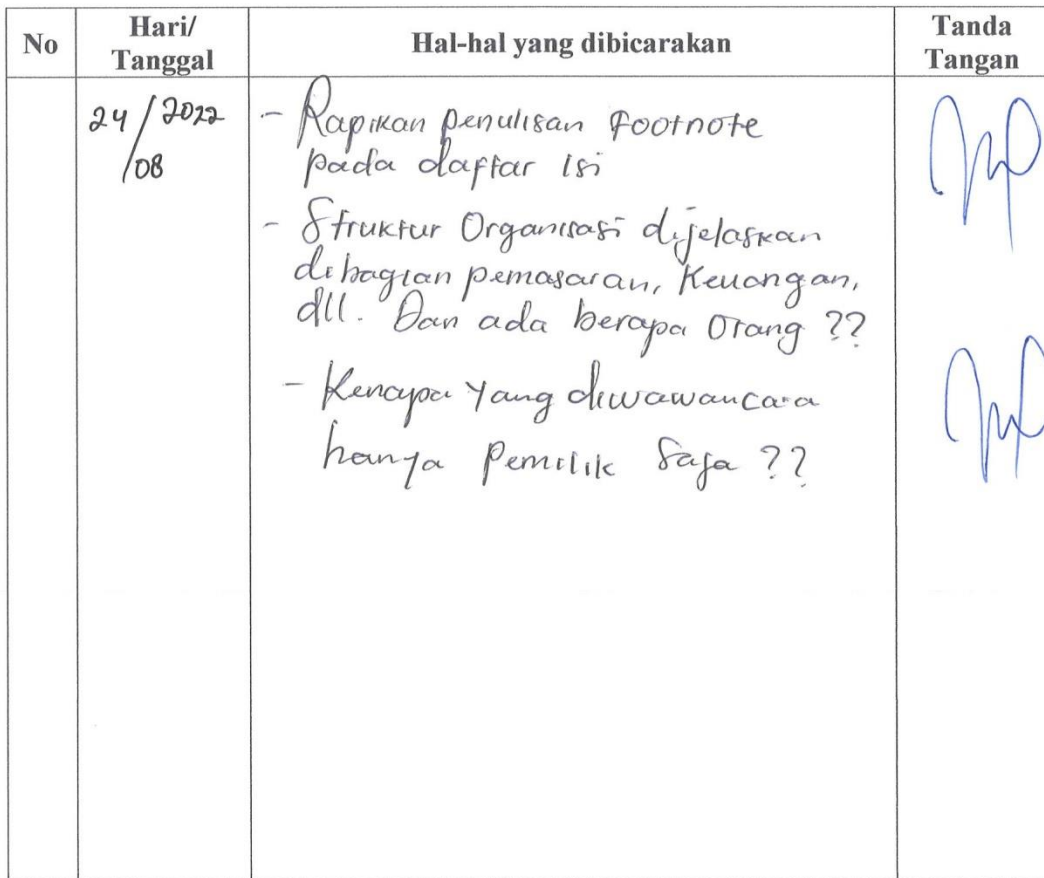 No
Hari/
Tanggal
Hal-hal yang dibicarakan
Tanda
Tangan
24/2022
/08
- Rapikan penulisan Footnote
pada daftar isi
- Struktur Organisasi dijelaskan
dibagian pemasaran, Keuangan,
dll. Dan ada berapa Orang ??
- Kenapa Yang diwawancara
hanya Pemilik Saja ??